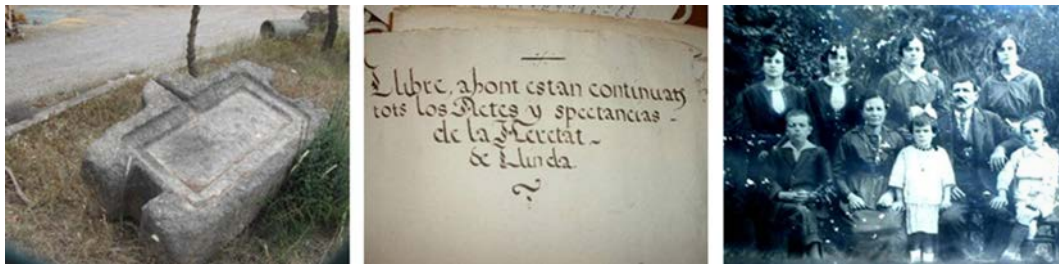 Llibre, ahont estan continuats
tots los Actes y spectancias -
de la Heretat -
de Llinda.